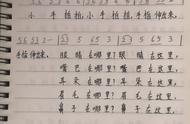 小 手 拍拍,小 手 拍拍,手指 伸出来,
5 6 5 3 2 - | 5 3 5 | 6 5 3 | 5 3 5 | 6 5 3 |
手指 伸出来, 眼睛 在哪里?眼 睛 在 这 里,
嘴 巴 在 哪 里?嘴 巴 在 这 里,
耳 朵 在 哪 里?耳 朵 在 这 里,
眉 毛 在 哪 里?眉 毛 在 这 里,
鼻 子 在 哪 里?鼻 子 在 这 里,